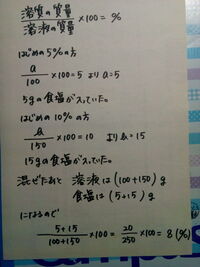 溶質の質量
溶液の質量 ×100 = %
はじめの5%の方
a/100 ×100=5 より a=5
5gの食塩が入っていた。
はじめの10%の方
b/150 ×100=10 より b=15
15gの食塩が入っていた。
混ぜたあと 溶液は(100+150)g
食塩は(5+15)g
になるので
5+15/100+150 ×100 = 20/250 ×100 = 8(%)